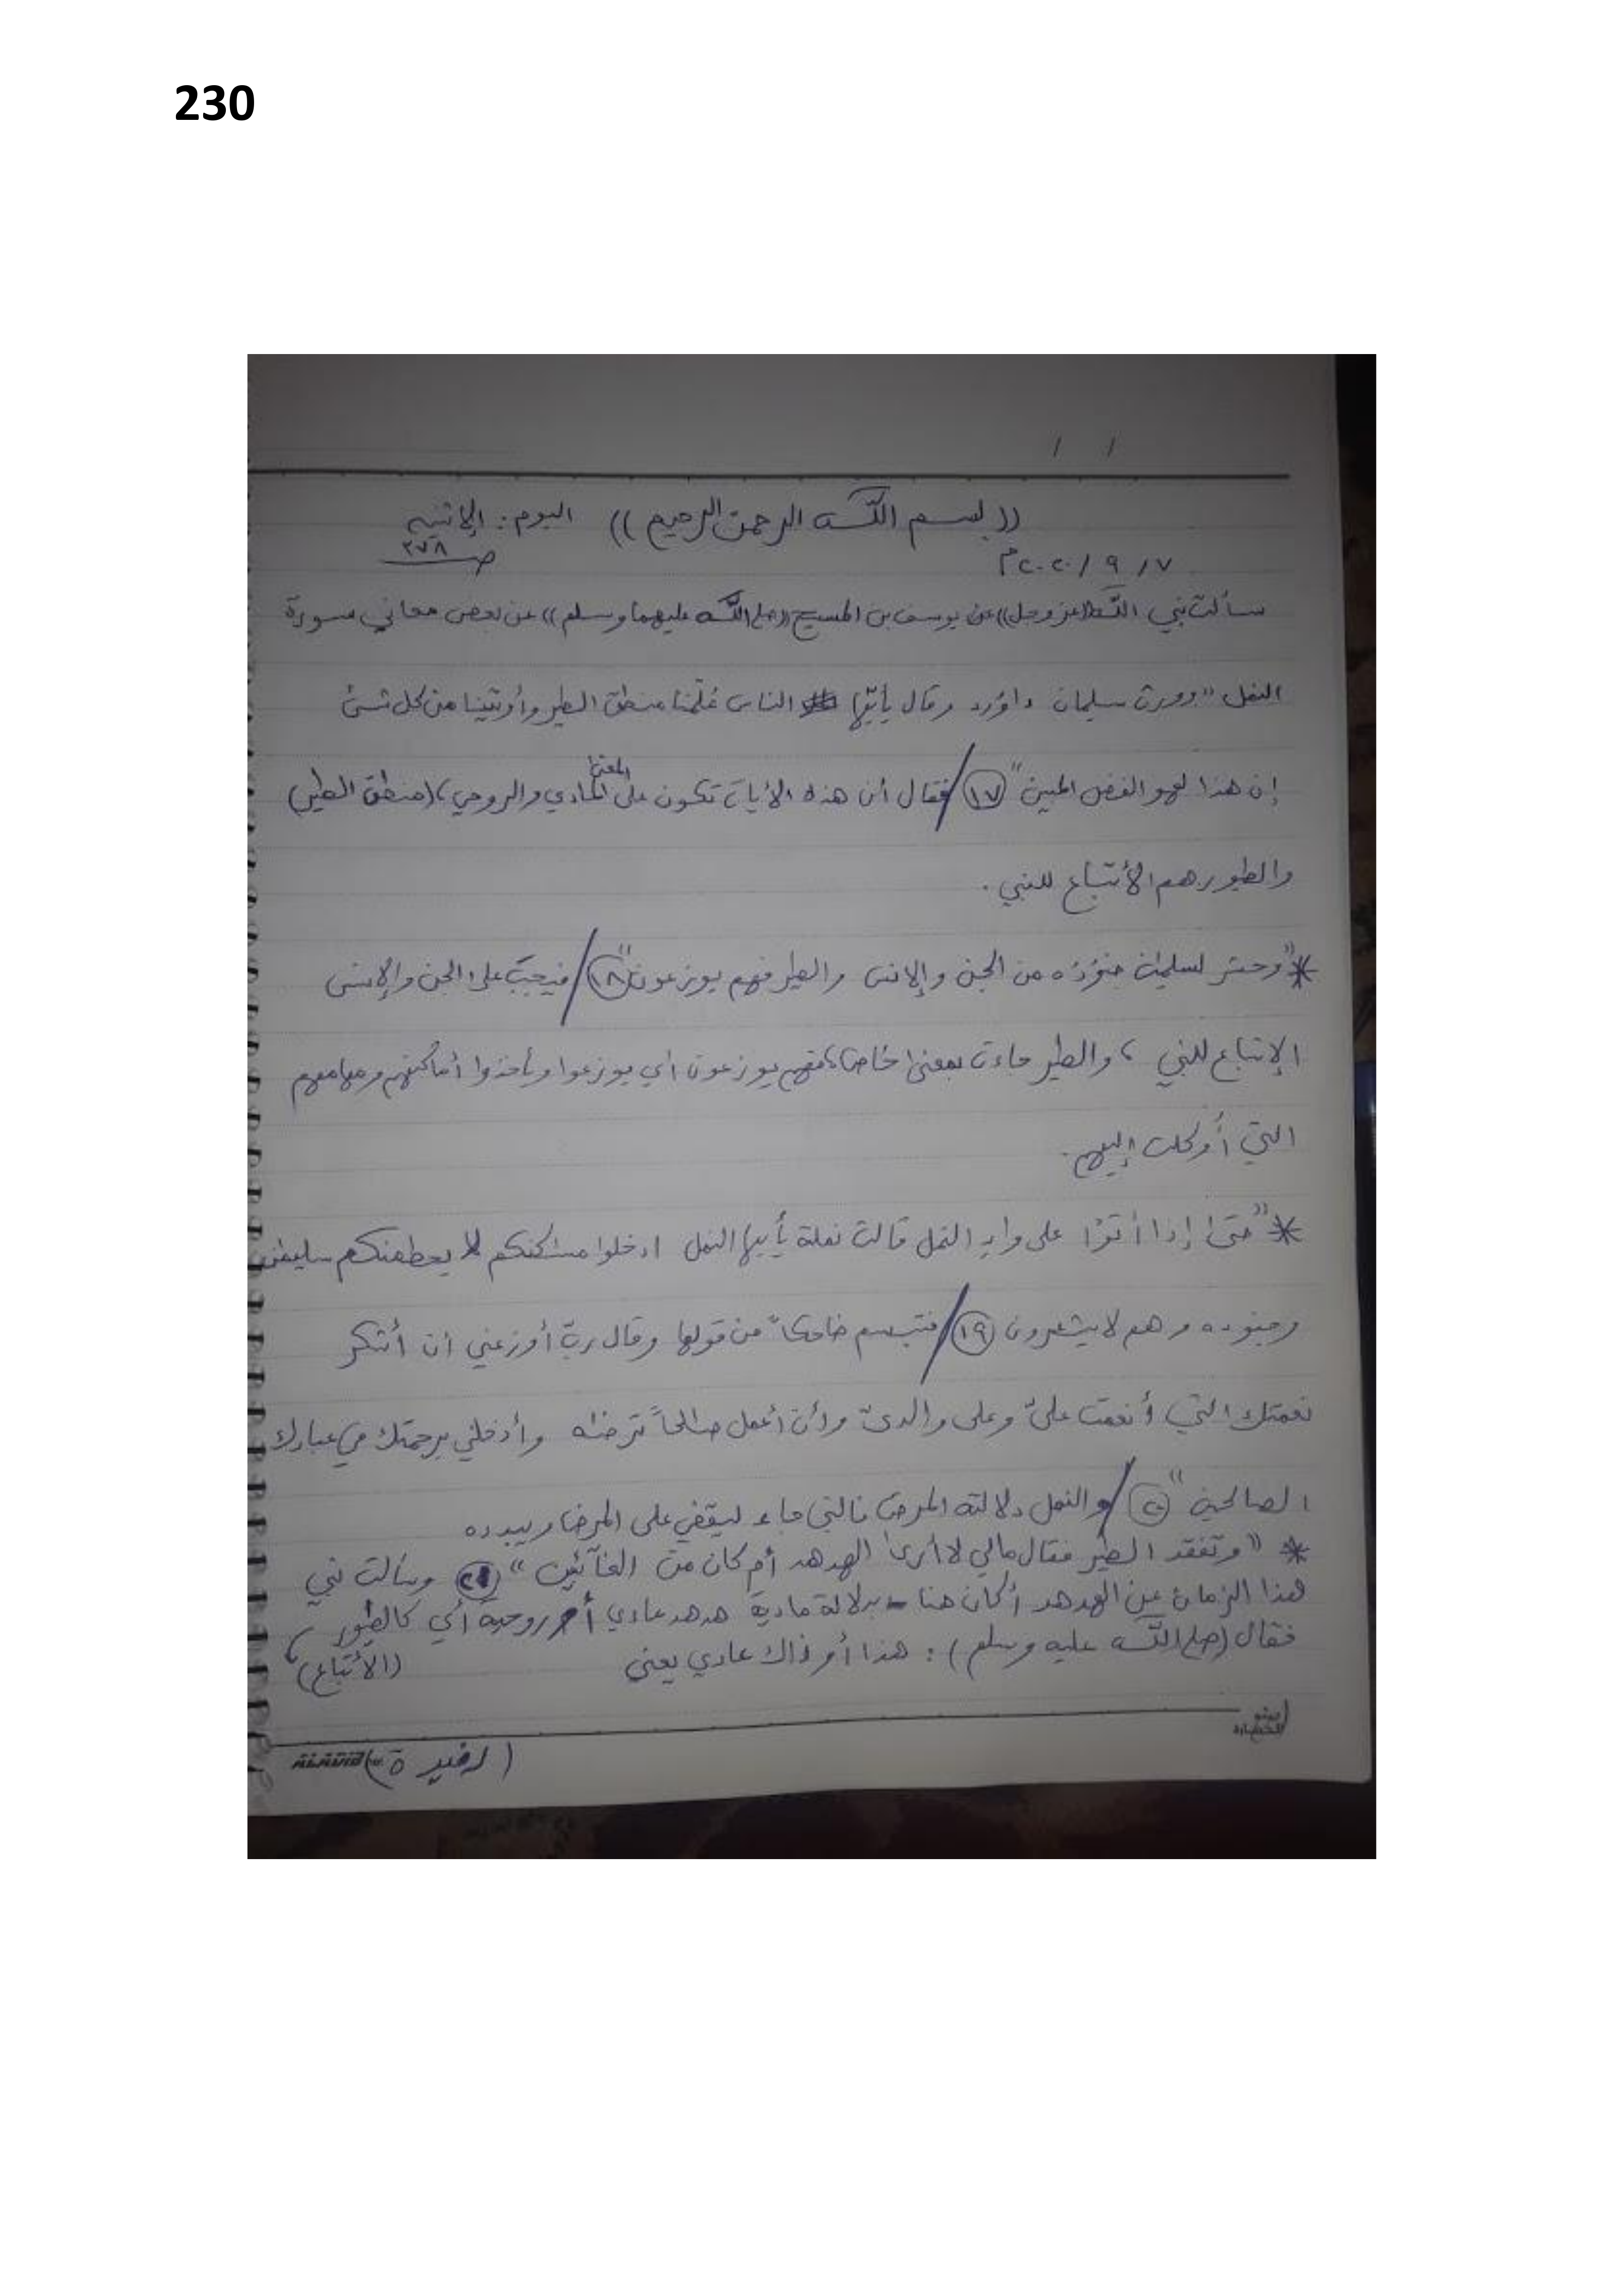 230
((بسم اللّه الرحمن الرحيم)) اليوم: الإثنين
٧ / ٩ / ٢٠٢٠م ص ٣٧٨
سألت نبي اللّه ((عز وجل)) عن يوسف بن المسيح ((صلى اللّه عليهما وسلم)) عن بعض معاني سورة
النمل "وورث سليمان داوُد وقال يأيّها الناس عُلّمنا منطق الطير وأوتينا من كل شئ
إن هذا لهو الفضل المبين" ١٧ / فقال أن هذه الأيات تكون على المعنى المادي والروحي، (منطق الطير)
والطيور هم الأتباع للنبي .
* "وحشر لسليمٰن جنُودُه من الجن والإنس والطير فهم يوزعون" ١٨ / فيجب على الجن والإنس
الإتباع للنبي ، والطير جاءت بمعنى خاص، فهم يوزعون أي يوزعوا ويأخذوا أماكنهم ومهامهم
التي أُوكلت إليهم.
* "حتى إذا أتوْا على وادِ النمل قالت نملة يأيها النمل ادخلوا مسٰكنكم لا يحطمنكم سليمٰن
وجنوده وهم لا يشعرون ١٩ / فتبسم ضاحكاً من قولها وقال ربّ أوزعني أن أشكر
نعمتك التي أنعمت عليّ وعلى والديّ وأن أعمل صالحاً ترضٰه وأدخلني برحمتك في عبادك
الصالحين" ٢٠ / والنمل دلالته المرض فالنبي جاء ليقضي على المرض ويبدده
* "وتفقد الطير فقال مالي لا أرى الهدهد أم كان من الغآئبين" ٢١ وسألت نبي
هذا الزمان عن الهدهد أكان هنا بدلالة مادية هدهد عادي أم روحية أي كالطيور
فقال (صلى اللّه عليه وسلم) : هذا أو ذاك عادي يعني (الأتباع)